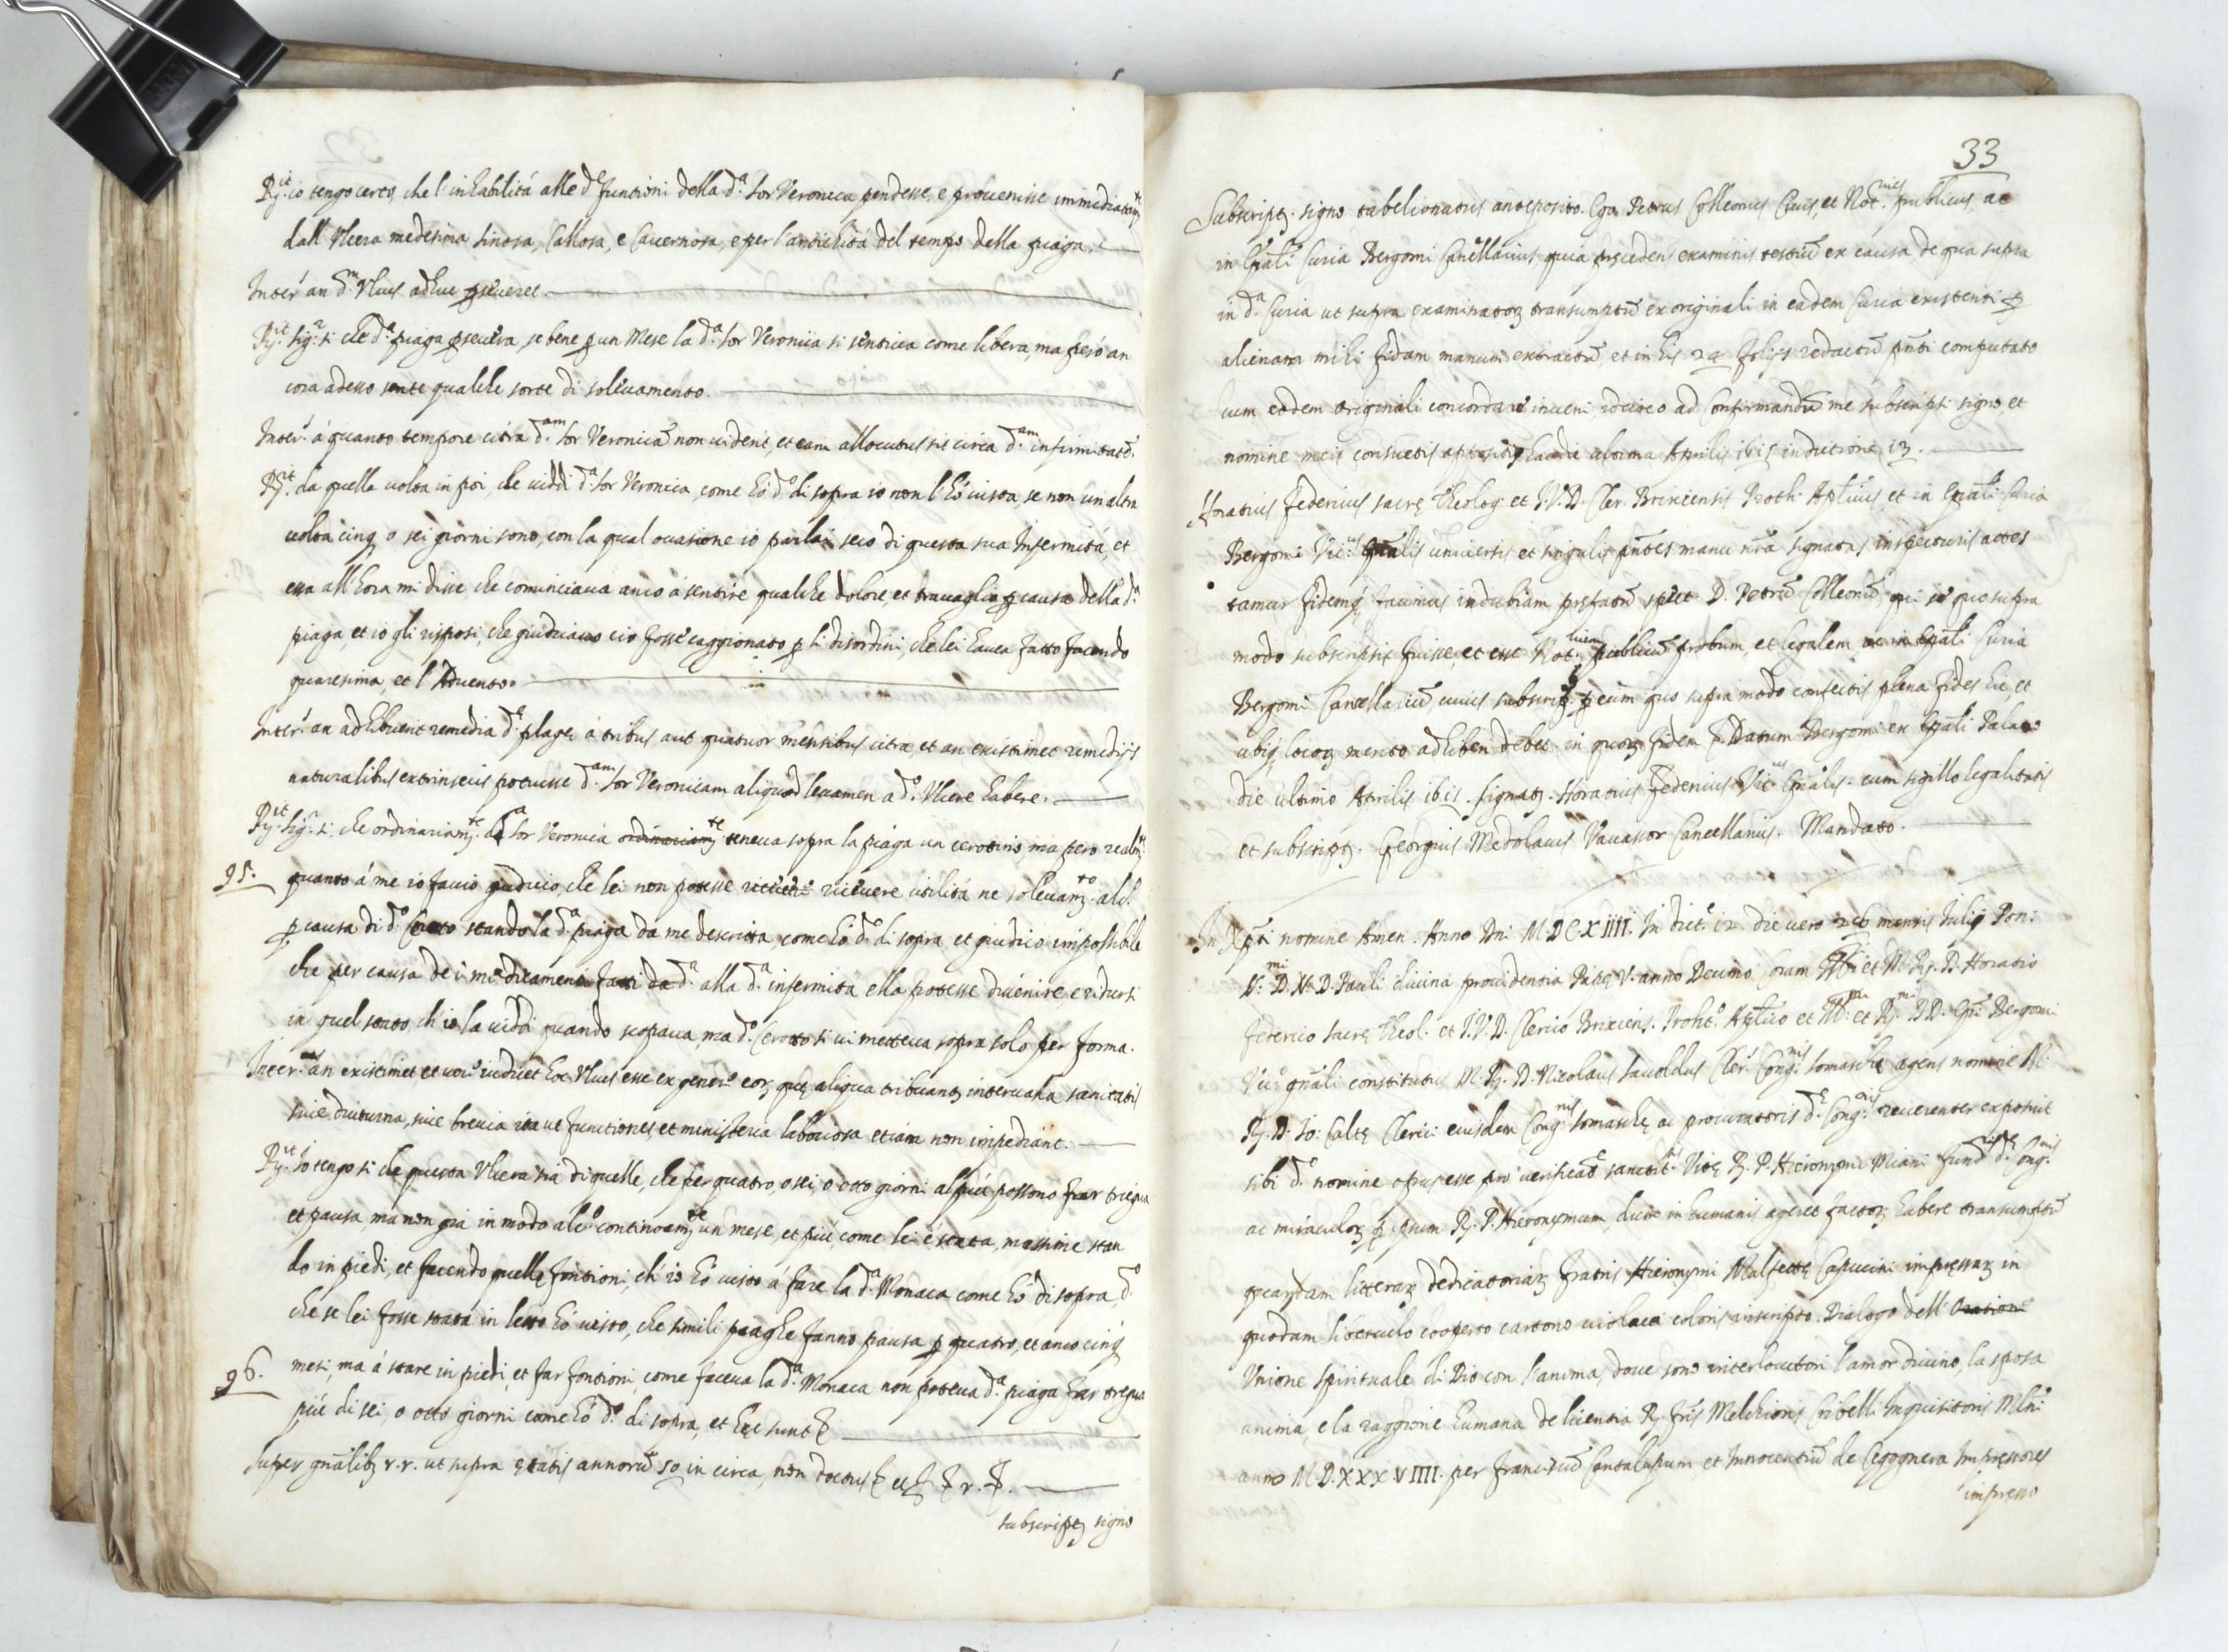 R.it io tengo certo, che l'inhabilitá alle d.e funtioni della d.a Sor Veronica pendesse, e prouenisse immediatam.te
dall'Vlcera medesima sinosa, Callosa, e Cauernosa, e per l'antichita del tempo della piaga.
Inter.s an d.m Vlcus adhuc perseueret.
R.it Sig.r si che d.a piaga perseuera, se bene per un Mese la d.a Sor Veronica si sentiua come libera, ma peró an
cora adesso sente qualche sorte di solleuamento.
Inter.s á quanto tempore citra d.am Sor Veronicā non uiderit, et eam allocutus sit circa d.am infirmitatē.
R.it da quella uolta in poi, che uiddi d.a Sor Veronica, come hó d.o di sopra io non l'hó uista, se non un'altra
uolta cinq o sei giorni sono, con la qual occasione io parlai seco di questa sua Infermitá, et
essa all'hora mi disse che cominciaua anco á sentire qualche dolore, et trauaglio per causa della d.a
piaga, et io gli risposi, che giudicauo ció fosse caggionato per li disordini, che lei haueua fatto facendo
quaresima, et l'Aduento.
Inter.s an adhibuerit remedia d.e plagę á tribus aut quatuor mensibus citra, et an existimet remedijs
naturalibus extrinsecis potuisse d.am Sor Veronicam aliquod leuamen a d.o Vlcere habere.
R.it Sig.r si, che ordinariam.te d.a Sor Veronica ordinariam.te teneua sopra la piaga un cerotino, ma pero realm.te
95. quanto á me io faccio giudicio, che lei non potesse riceuere riceuere utilitá ne solleuam.to alc.o
per causa di d.o Cerotto stando la d.a piaga da me descritta, come hó d.o di sopra et giudico impossibile
che per causa de i medicamenti fatti da d.a alla d.a infermita ella potesse diuenire, e ridursi
in quel stato, ch'io la uiddi quando scopaua, ma d.o Cerotto si ui metteua sopra solo per forma.
Inter.s án existimet et uerē iudicet hoc Vlcus esse ex genere eorz quę aliqua tribuant interualla sanitatis
siue diuturna, siue breuia ita ut functiones, et ministeria laboriosa etiam non impediant.
R.it Io tengo si che questa Vlcera sia di quelle, che per quatro, o sei, o otto giorni al piú possono far triegua
et pausa, ma non giá in modo alc.o continoam.te un mese, et piú, come lei é stata, massime stan
do in piedi, et facendo quelle fontioni, ch'io hó uisto á fare la d.a Monaca come hó di sopra d.o
che se lei fosse stata in letto hó uisto, che simili piaghe fanno pausa per quatro, et anco cinq
96. mesi, ma á stare in piedi, et far fontioni, come faceua la d.a Monaca non poteua d.a piaga far tregua
piú di sei, o otto giorni come hó d.o di sopra, et hęc sunt &
Super gnālibz r.r. ut supra ętatis annorū 50 in circa, non doctus
subscriptz signo
33
Subscriptz. signo tabelionatus anteposito. Ego Petrus Colleonus Ciuis, et Not. publicus, ac
in Epāli Curia Bergomi Cancellarius quia pręcedens examinis testiū ex causa de qua supra
in d.a Curia ut supra examinatorz transumptū ex originali in eadem Curia existenti per
alienam mihi fidam manum extractū, et in his 29 folijs redactū pnti computato
cum eodem originali concordare inueni, idcirco ad Confirmandū me subscripsi signo et
nomine meis consuetis appositis hac die ultima Aprilis 1615 indictione 13.
Horatius Federicus sacrę Theolog. et I.V.D. Cler. Brixiensis Proth. Aplicus, et in Epāli Curia
Bergomi Vic.us Gnālis uniuersis et singulis pntes manu nrā signatas inspecturis attes
tamur fidemq. facimus indubiam pręfatū spect. D. Petrū Colleonū, qui se quo supra
modo subscripsit fuisse, et esse Not. publicū probum, et legalem ac in Epāli Curia
Bergomi Cancellariū cuius subscrip. per eum quo supra modo confectis plena fides hic, et
ubiq. locorz merito adhiben debet in quorz fidem &. Datum Bergomi ex Epāli Palatio
die ultimo Aprilis 1615. signatz. Horatius Federicus Vic.us Gnālis. cum sigillo legalitatis
et subscriptz. Georgius Medolacus Vauassor Cancellarius. Mandato.
In Xpi nomine Amen. Anno Dni M.DC.XIIII. Indict.e 12 die uero 26 mensis Iulij Pon:
S.mi D.N.D. Pauli diuina prouidentia Papę V. anno Decimo Coram Ill. et M. R. D. Horatio
Federico Sacrę Theol. et I.V.D. Clerico Brixiens. Proth.o Aplico et Ill.mi et R.mi D.D. Epi Bergomi
Vic.o gnāli constitutus M. R. D. Nicolaus Sauoldus Cler. Cong.nis Somaschę agens nomine M.
R. D. Io: Caltę Clerici eiusdem Cong.nis Somaschę ac procuratoris d.ę Cong.nis reuerenter exposuit
sibi d.o nomine opus esse pro uerificat.e sanctit.is Vitę R. P. Hieronymi Miani fund.ris d.ę Cong.nis
ac miraculorz per ipsum R. P. Hieronymum, dum in humanis ageret factorz habere transumptū
quarundam litterarz dedicatoriarz fratris Hieronymi Malfettę Capuccini impressarz in
quodam libercolo cooperto cartono uiolacei coloris inscripto. Dialogo dell' Oratione
Vnione Spirituale di Dio con l'anima, doue sono interlocutori l'amor diuino, la sposa
anima, e la raggione humana de licentia R. fris Melchioris Cribelli Inquisitoris Mlni
anno M.D.XXXVIIII. per franciscū Cantalupum et Innocentiū de Cegognera Impressores
impresso